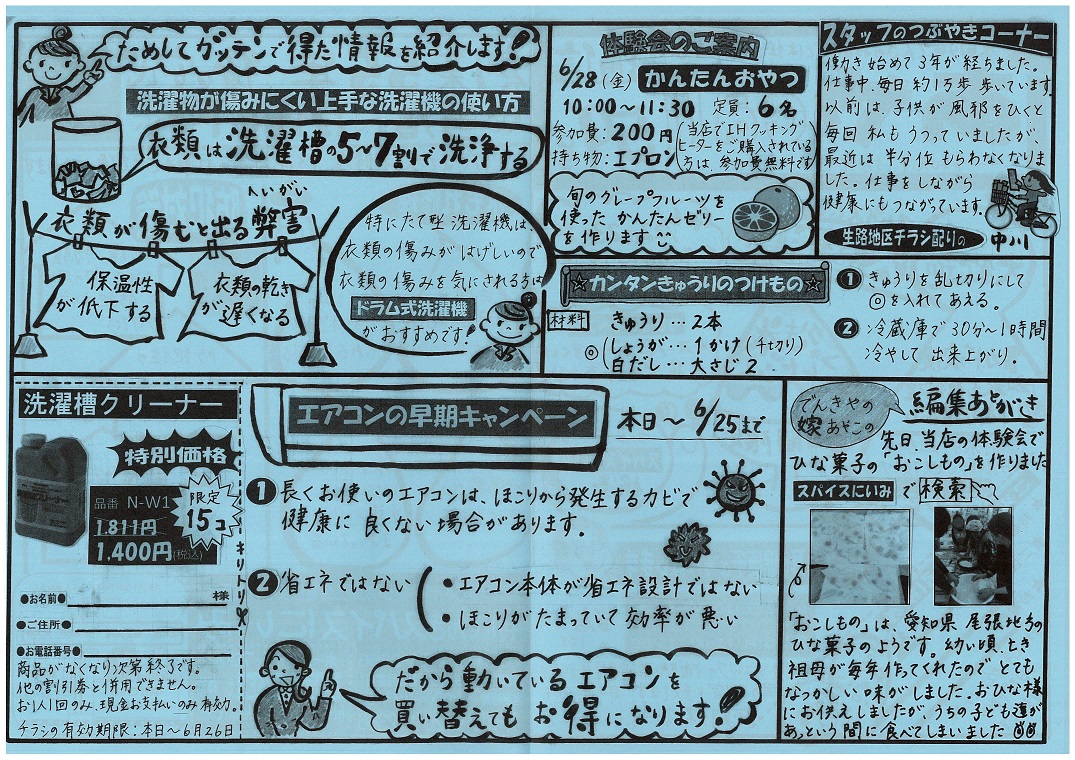 ためしてガッテンで得た情報を紹介します!
洗濯物が傷みにくい上手な洗濯機の使い方
衣類は洗濯槽の5~7割で洗浄する
へいがい
衣類が傷むと出る弊害
保温性
が低下する
衣類の乾き
が遅くなる
特にたて型洗濯機は、
衣類の傷みがはげしいので
衣類の傷みを気にされる方は
ドラム式洗濯機
がおすすめです!
体験会のご案内
6/28(金) かんたんおやつ
10:00~11:30 定員:6名
参加費:200円
持ち物:エプロン
(当店でIHクッキング
ヒーターをご購入されている
方は、参加費無料です)
旬のグレープフルーツを
使ったかんたんゼリー
を作ります
スタッフのつぶやきコーナー
働き始めて3年が経ちました。
仕事中、毎日約1万歩歩いています。
以前は、子供が風邪をひくと
毎回私もうつっていましたが、
最近は半分位もらわなくなりま
した。仕事をしながら
健康にもつながっています。
生路地区チラシ配りの 中川
☆カンタンきゅうりのつけもの☆
材料 きゅうり…2本
◎(しょうが…1かけ(千切り)
白だし…大さじ2
❶ きゅうりを乱切りにして
◎を入れてあえる。
❷ 冷蔵庫で30分~1時間
冷やして出来上がり。
洗濯槽クリーナー
特別価格
品番 N-W1
1.811円
1.400円(税込)
限定
15コ
キリトリ
●お名前● 様
●ご住所●
●お電話番号●
商品がなくなり次第終了です。
他の割引券と併用できません。
お1人1回のみ、現金お支払いのみ有効。
チラシの有効期限:本日~6月26日
エアコンの早期キャンペーン
本日~6/25まで
❶ 長くお使いのエアコンは、ほこりから発生するカビで
健康に良くない場合があります。
❷ 省エネではない
・エアコン本体が省エネ設計ではない
・ほこりがたまっていて効率が悪い
だから動いているエアコンを
買い替えてもお得になります!
でんきやの
嫁あやこの
編集あとがき
先日、当店の体験会で
ひな菓子の「おこしもの」を作りました
スパイスにいみ で 検索
「おこしもの」は、愛知県尾張地方の
ひな菓子のようです。幼い頃、とき
祖母が毎年作ってくれたのでとても
なつかしい味がしました。おひな様
にお供えしましたが、うちの子ども達が
あっという間に食べてしまいました